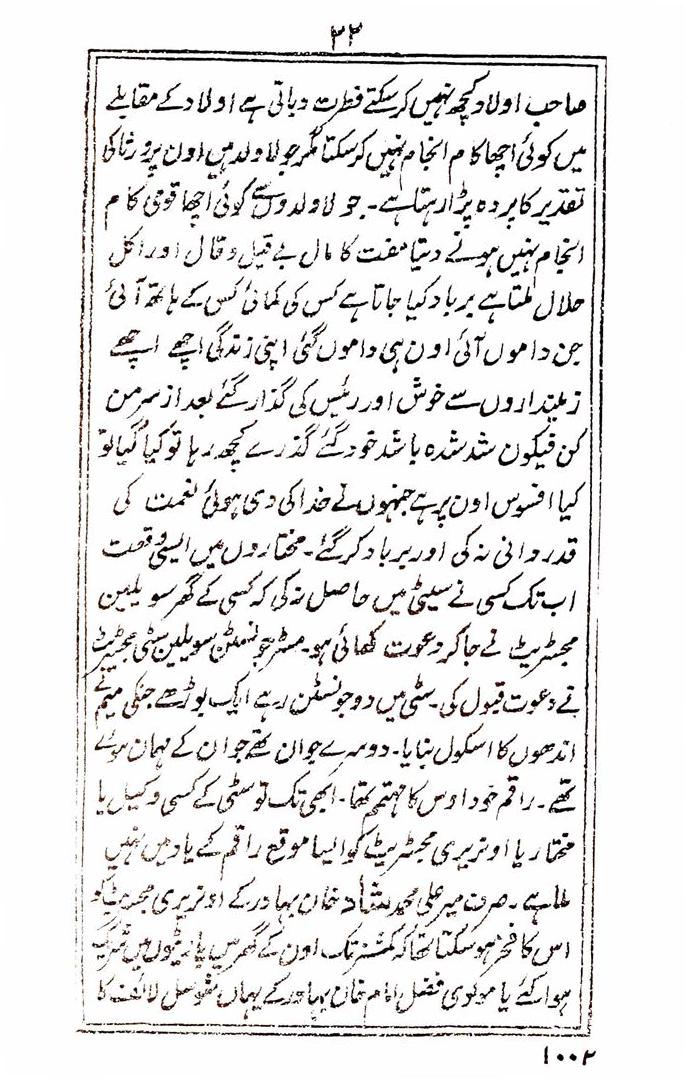 ۳۳
صاحب اولاد کچھ نہیں کر سکتے فطرت دباتی ہے اولاد کے مقابلے
میں کوئی اچھا کام انجام نہیں کر سکتا مگر جو لا ولد ہیں اون پر ورثا کی
تقدیر کا پردہ پڑا رہتا ہے۔ جو لا ولدوں سے کوئی اچھا قومی کام
انجام نہیں ہونے دیتا مفت کا مال بے قیل و قال اور اکل
حلال ملتا ہے برباد کیا جاتا ہے کس کی کمائی کس کے ہاتھ آئی
جن داموں آئی اون ہی داموں گئی اپنی زندگی اچھے اچھے
زمینداروں سے خوش اور رئیس کی گذار گئے بعد از سر من
کن فیکون شد شدہ باشد خود گئے گذرے کچھ رہا تو کیا گیا تو
کیا افسوس اون پر ہے جنہوں نے خدا کی دی ہوئی نعمت کی
قدر دانی نہ کی اور برباد کر گئے۔ مختاروں میں ایسی وقعت
اب تک کسی نے سیٹی میں حاصل نہ کی کہ کسی کے گھر سویلین
مجسٹریٹ نے جا کر دعوت کھائی ہو۔ مسٹر جونسٹن سویلین سٹی مجسٹریٹ
نے دعوت قبول کی۔ سٹی میں دو جونسٹن رہے ایک بوڑھے جنکی میم نے
اندھوں کا اسکول بنایا۔ دوسرے جوان تھے جو ان کے مہمان ہوئے
تھے۔ راقم خود اوس کا مہتمم تھا۔ ابھی تک تو سٹی کے کسی وکیل یا
مختار یا اونریری مجسٹریٹ کو ایسا موقع راقم کے یاد میں نہیں
ملا ہے۔ صرف میر علی محمد شاد خان بہادر کے اونریری مجسٹریٹ کو
اس کا فخر ہو سکتا تھا کہ کمشنر تک اون کے گھر میں پارٹیوں میں شریک
ہوا کئے یا مولوی فضل امام خان بہادر کے یہاں سوشل لائف کا
۱۰۰۲